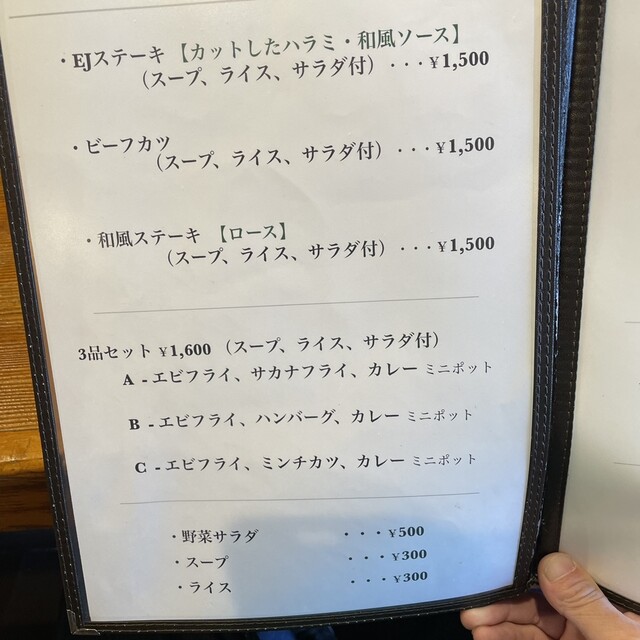 ・EJステーキ 【カットしたハラミ・和風ソース】
（スープ、ライス、サラダ付）・・・¥1,500
・ビーフカツ
（スープ、ライス、サラダ付）・・・¥1,500
・和風ステーキ 【ロース】
（スープ、ライス、サラダ付）・・・¥1,500
3品セット ¥1,600 （スープ、ライス、サラダ付）
A - エビフライ、サカナフライ、カレー ミニポット
B - エビフライ、ハンバーグ、カレー ミニポット
C - エビフライ、ミンチカツ、カレー ミニポット
・野菜サラダ ・・・¥500
・スープ ・・・¥300
・ライス ・・・¥300